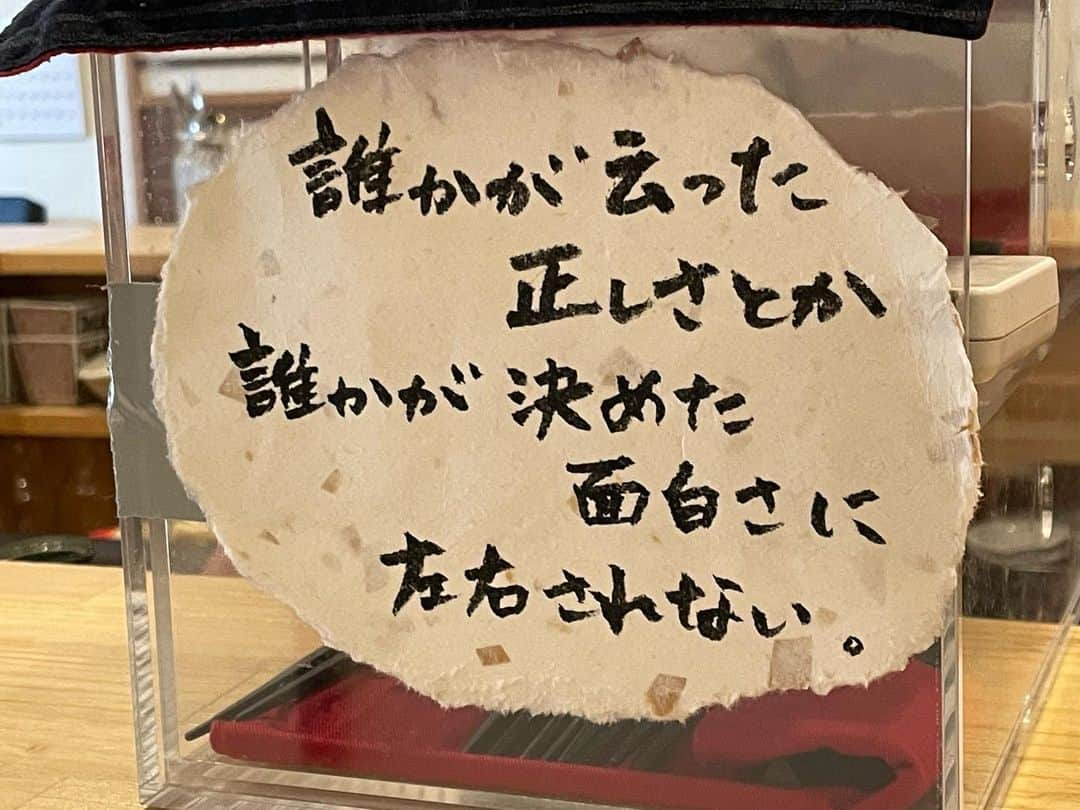 誰かが云った
正しさとか
誰かが決めた
面白さに
左右されない。